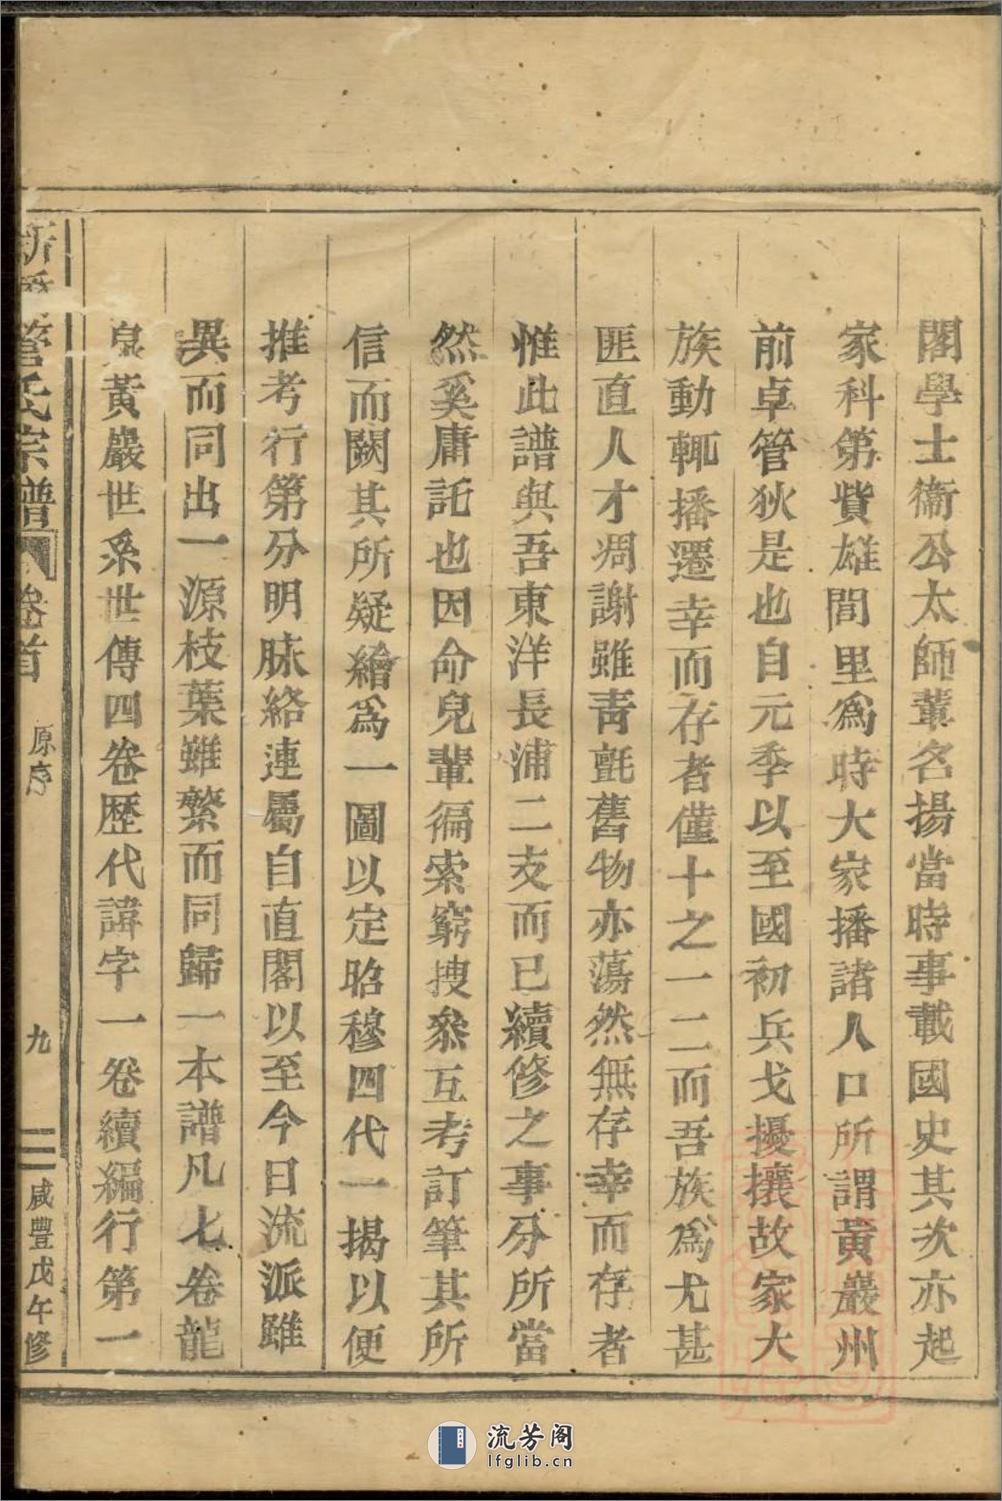 閣學士衞公太師輩名揚當時事載國史其次亦起
家科第貲雄閭里爲時大家播諸人口所謂黃巖州
前卓管狄是也自元季以至國初兵戈擾攘故家大
族動輒播遷幸而存者僅十之一二而吾族爲尤甚
匪直人才凋謝雖靑氈舊物亦蕩然無存幸而存者
惟此譜與吾東洋長浦二支而已續修之事分所當
然奚庸託也因命兒輩徧索窮搜叅互考訂筆其所
信而闕其所疑繪爲一圖以定昭穆四代一揭以便
推考行第分明脉絡連屬自直閣以至今日流派雖
異而同出一源枝葉雖繁而同歸一本譜凡七卷龍
泉黃巖世系世傳四卷歷代諱字一卷續編行第一
新 管氏宗譜 卷首 原序 九 咸豐戊午修
流芳阁
lfglib.cn